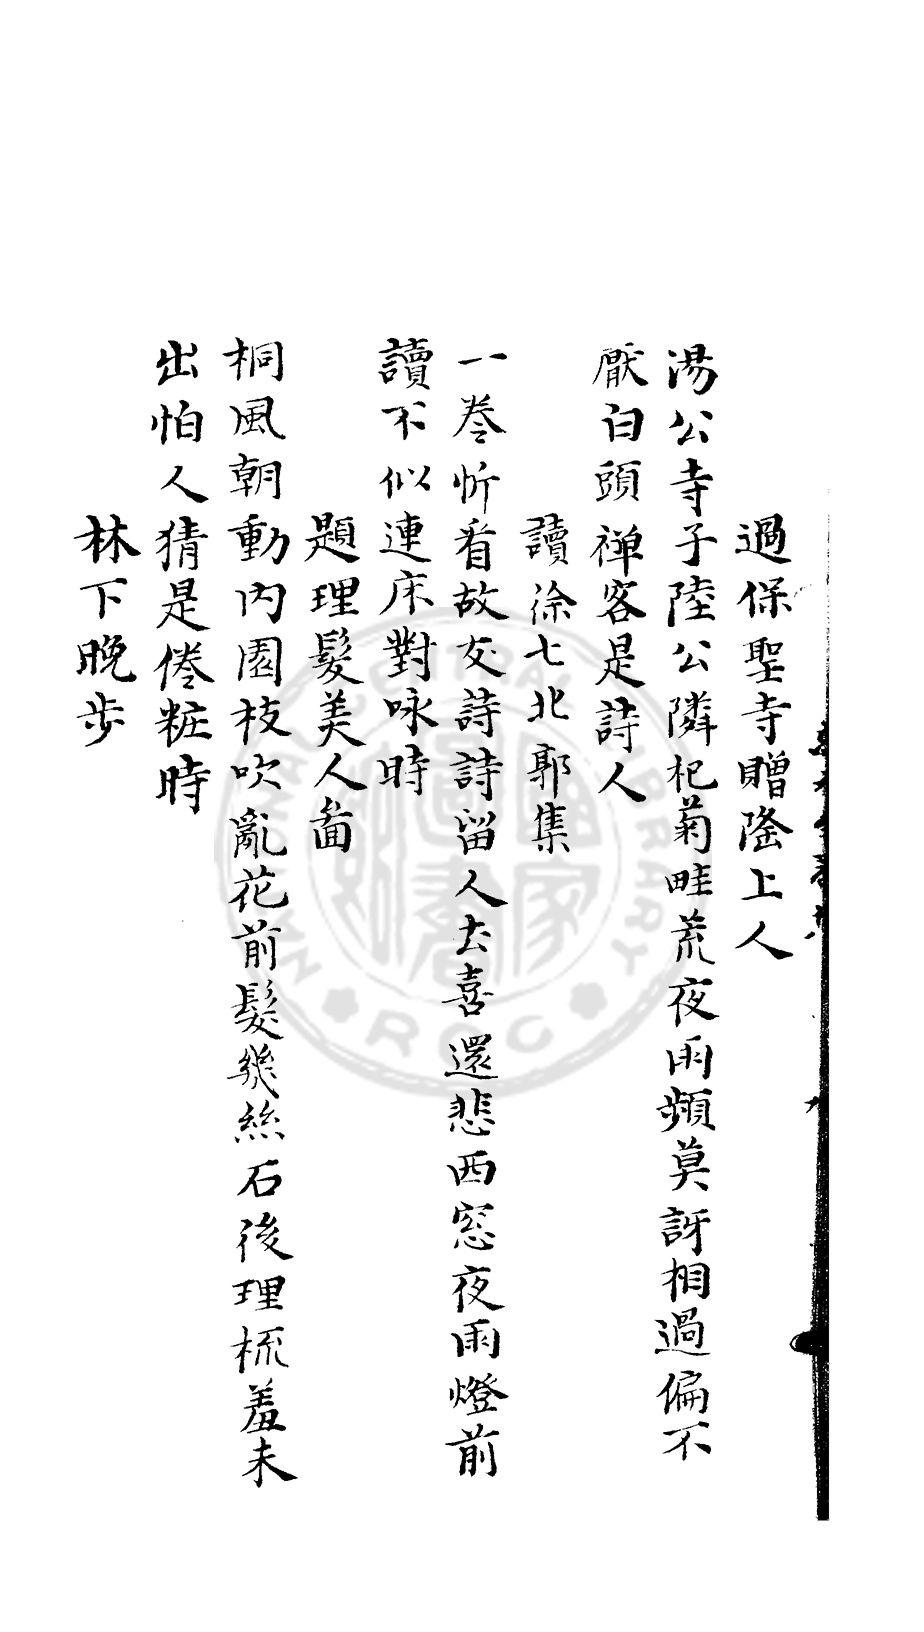 過保聖寺贈隆上人
湯公寺子陸公隣杞菊畦荒夜雨頻莫訝相過偏不
厭白頭禅客是詩人
讀徐七北郭集
一卷忻看故友詩詩留人去喜還悲西窓夜雨燈前
讀不似連床對咏時
題理髮美人啚
桐風朝動內園枝吹亂花前髮幾絲石後理梳羞未
出怕人猜是倦粧時
林下晚步
CENTRAL LIBRARY
ROC
國家圖書